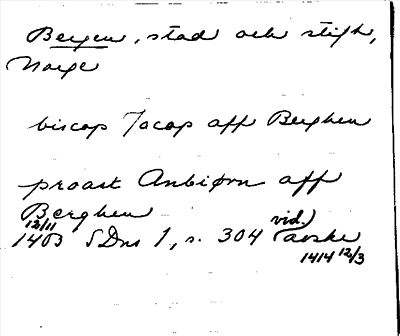 Bergen, stad och stift,
Norge
biscop Jacop aff Berghen
proast Anbiørn aff
Berghen
12/11
1403 SDns 1, s. 304 (vid.) avskr
1414 12/3